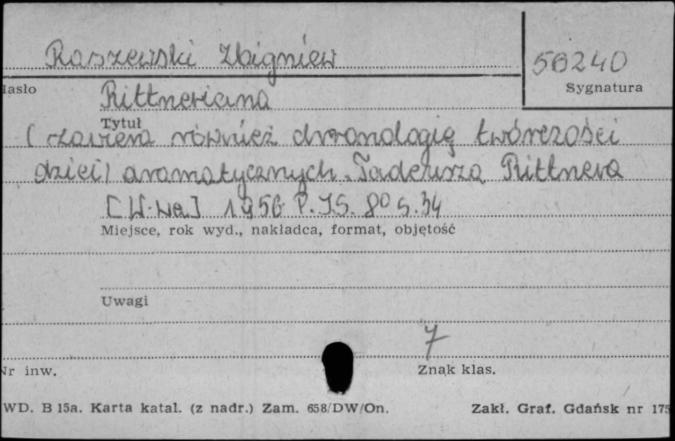 Raszewski Zbigniew
56240
Hasło
Sygnatura
Rittneriana
Tytuł
(zawiera również chronologię twórczości
dzieł) dramatycznych Tadeusza Rittnera
[W-wa] 1956 P.I.S. 8° s. 34
Miejsce, rok wyd., nakładca, format, objętość
Uwagi
7
Nr inw.
Znak klas.
WD. B 15a. Karta katal. (z nadr.) Zam. 658/DW/On.
Zakł. Graf. Gdańsk nr 175